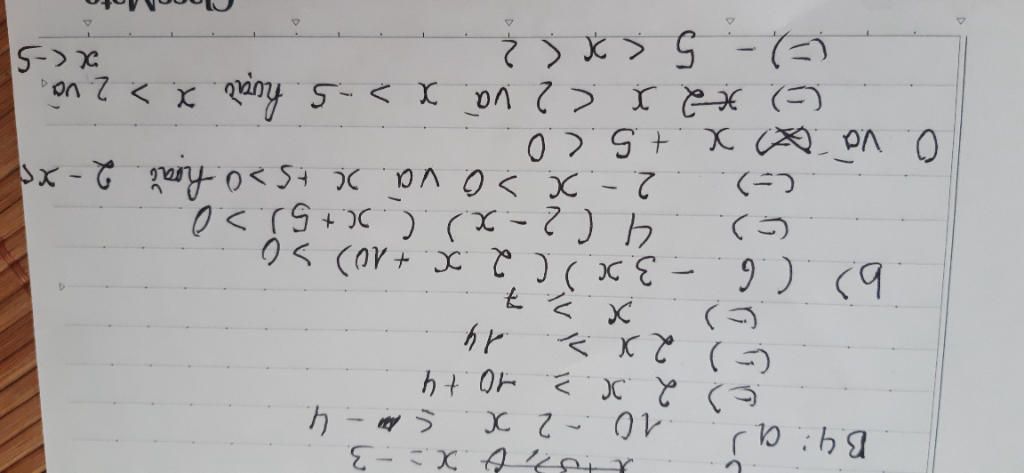 x = -3
B4: a) 10 - 2x ≤ -4
(=) 2x ≥ 10 + 4
(=) 2x ≥ 14
(=) x ≥ 7
b) (6 - 3x)(2x + 10) > 0
(=) 4(2 - x)(x + 5) > 0
(=) 2 - x > 0 và x + 5 > 0 hoặc 2 - x <
0 và x + 5 < 0
(=) x < 2 và x > -5 hoặc x > 2 và
x < -5
(=) -5 < x < 2
ClassMate